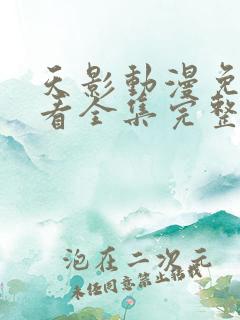 天影動漫免
看全集完整
泡在二次元
未经同意禁止转载